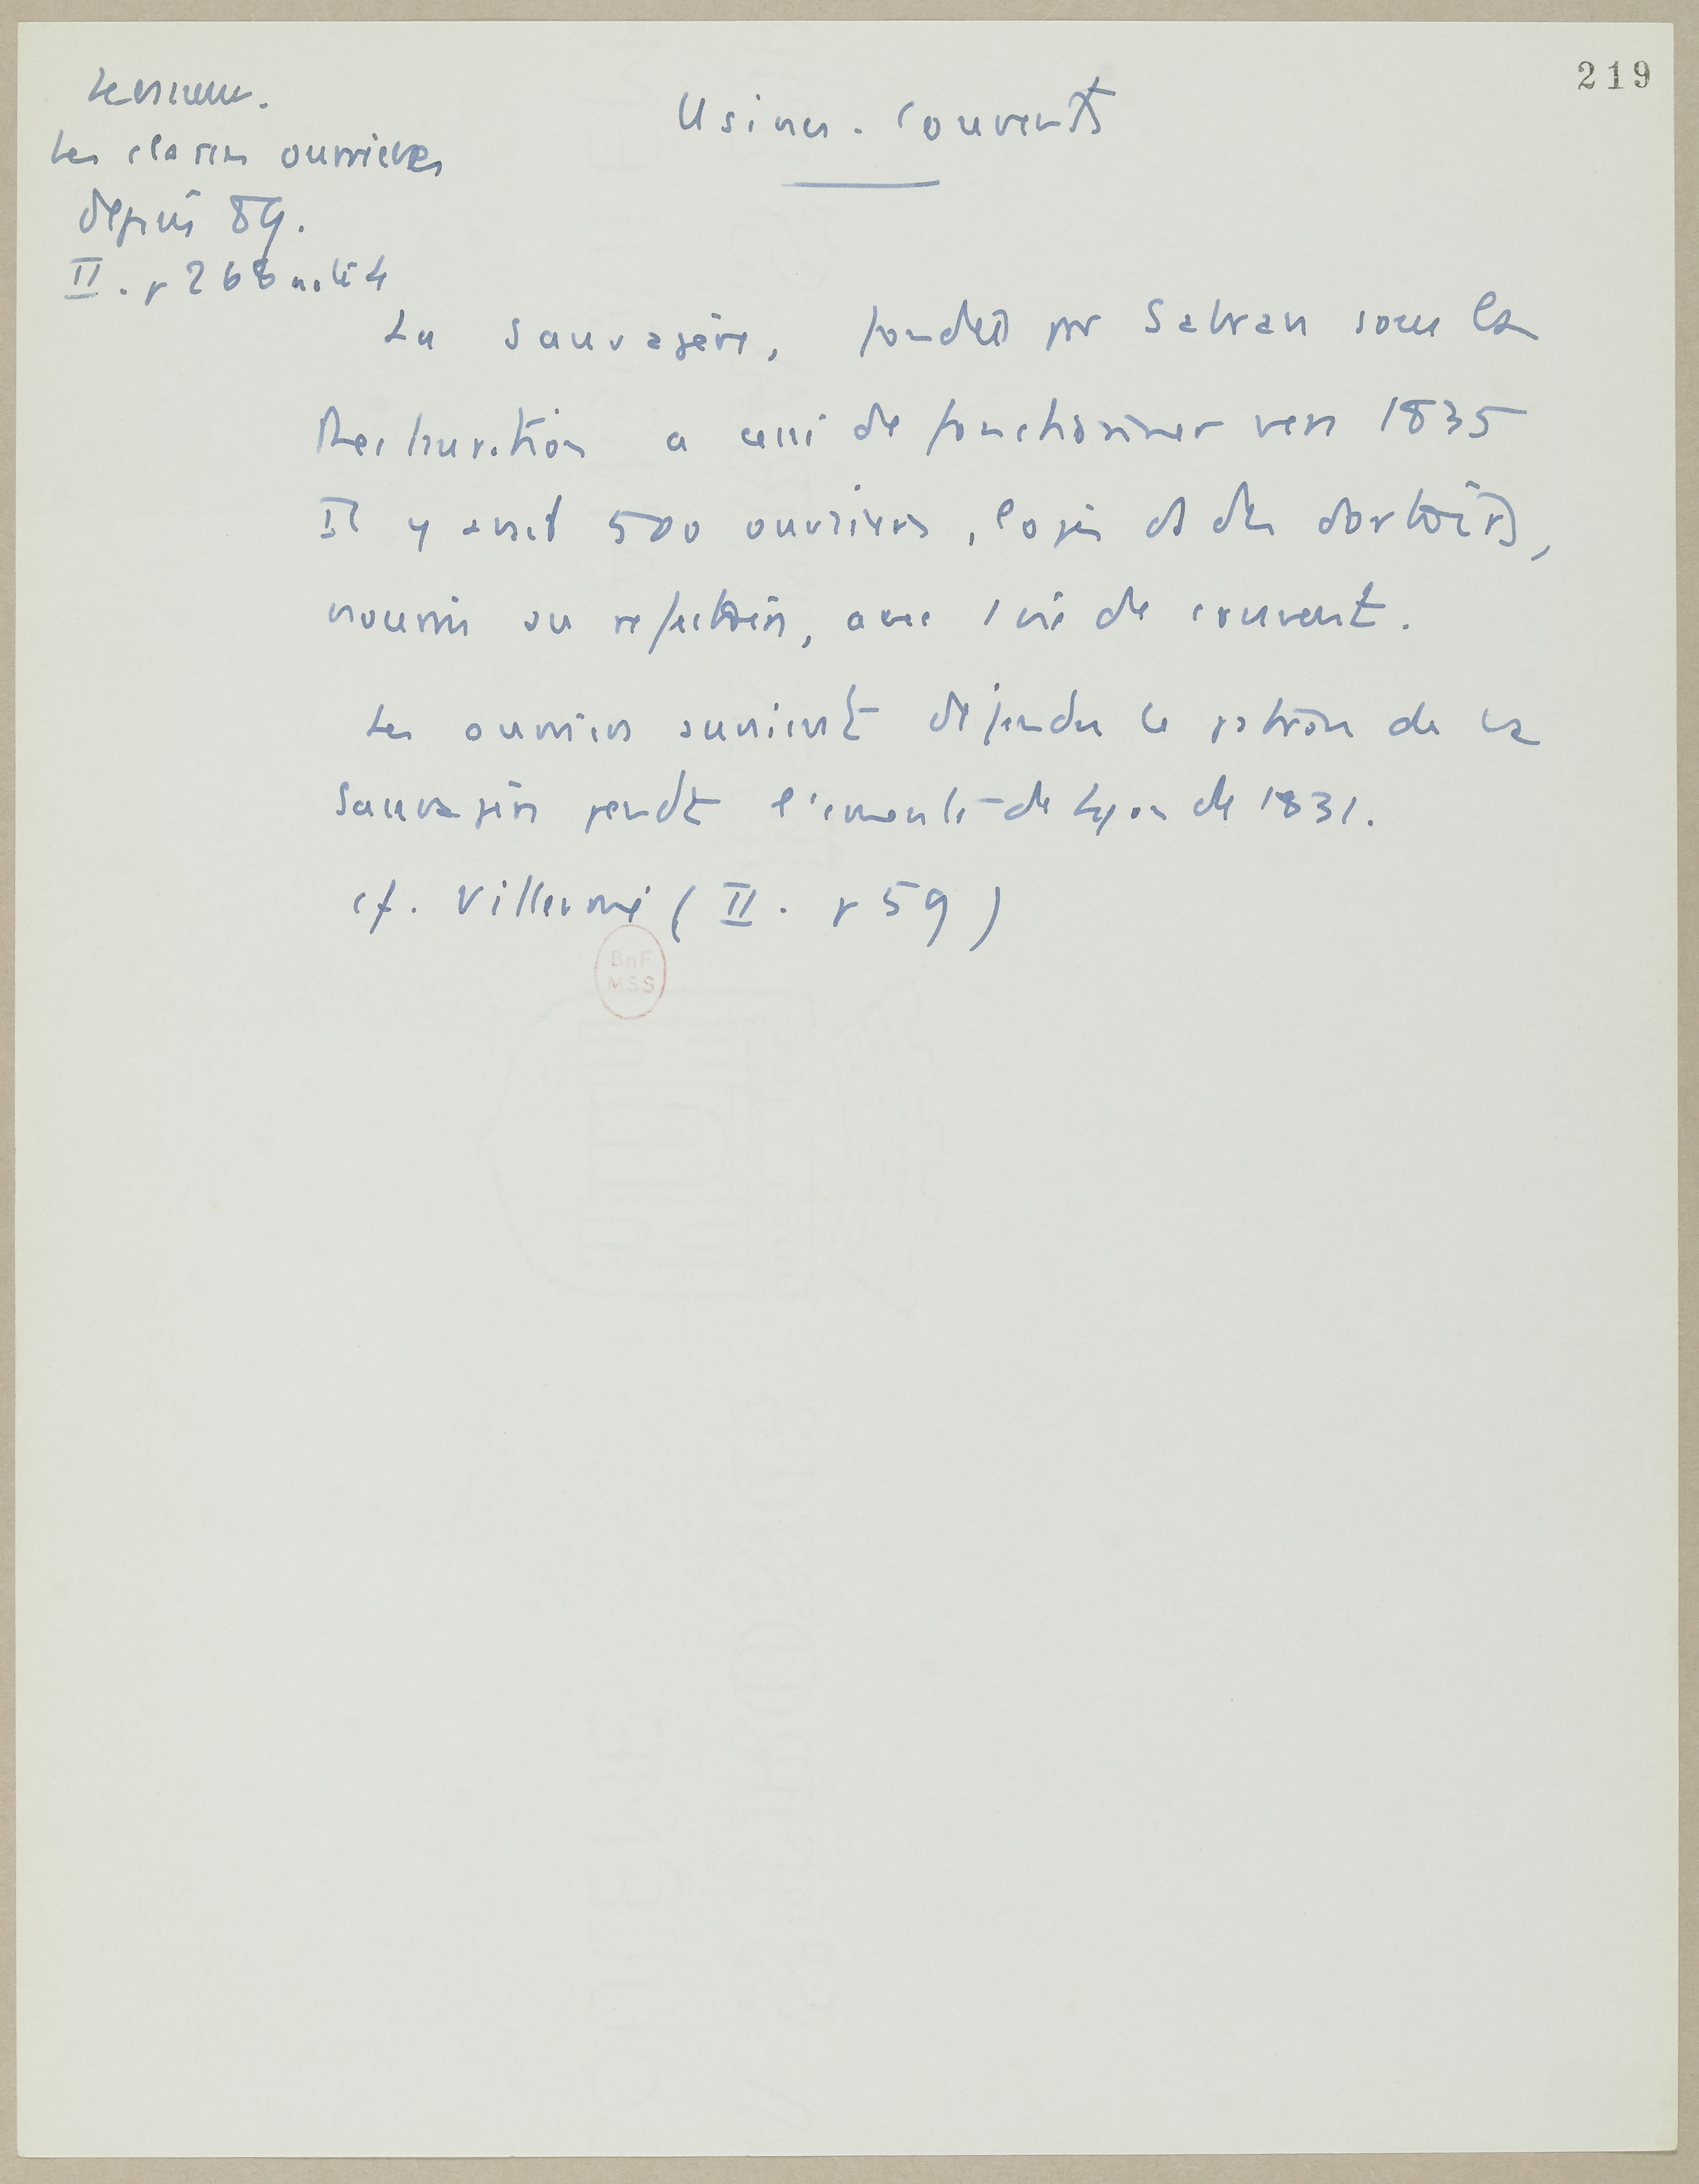 219
Levasseur.
Les classes ouvrières
depuis 89.
II. p 268 note 4
Usines-couvents
La Sauvagère, fondée par Salvan sous la
Restauration a cessé de fonctionner vers 1835
Il y avait 500 ouvriers, logés ds des dortoirs,
nourris au réfectoire, avec 1 vie de couvent.
Les ouvriers auraient défendu le patron de la
Sauvagère pendt l'émeute de Lyon de 1831.
cf. Villermé (II. p 59)
BnF
MSS